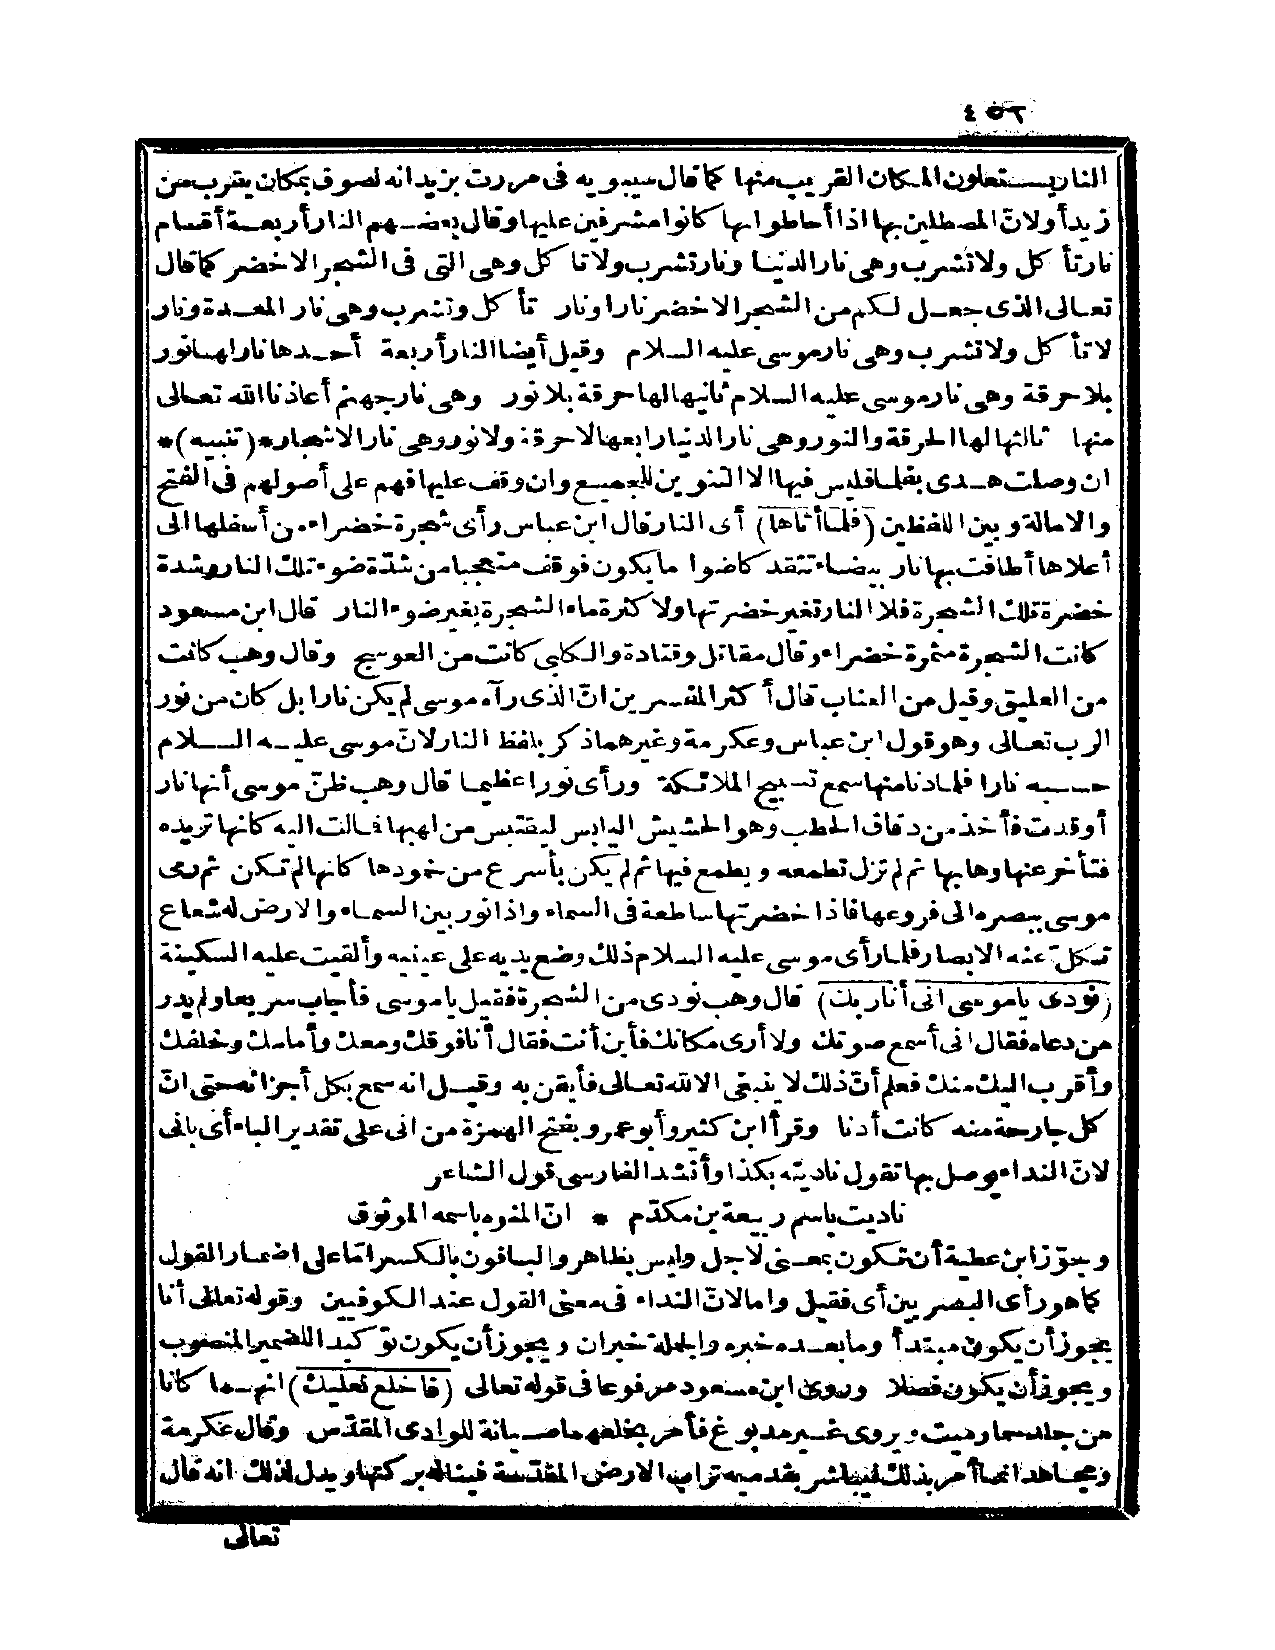 ٤٥٢
النار يستعلون المكان القريب منها كما قال سيبويه فى مررت بزيد انه لصوق بمكان يقرب من
زيد أولان المصطلين بها اذا أحاطوا بها كانوا مشرفين عليها وقال بعضهم النار أربعة أقسام
نار تأكل ولا تشرب وهى نار الدنيا ونار تشرب ولا تأكل وهى التى فى الشجر الاخضر كما قال
تعالى الذى جعل لكم من الشجر الاخضر نارا ونار تأكل وتشرب وهى نار المعدة ونار
لا تأكل ولا تشرب وهى نار موسى عليه السلام وقيل أيضا النار أربعة أحدها نار لها نور
بلا حرقة وهى نار موسى عليه السلام ثانيها لها حرقة بلا نور وهى نار جهنم أعاذنا الله تعالى
منها ثالثها لها الحرقة والنور وهى نار الدنيا رابعها لا حرقة ولا نور وهى نار الاشجار *(تنبيه)*
ان وصلت هدى بفلما فليس فيها الا التنوين للجميع وان وقف عليها فهم على أصولهم فى الفتح
والامالة وبين اللفظين (فلما أتاها) أى النار قال ابن عباس رأى شجرة خضراء من أسفلها الى
أعلاها أطافت بها نار بيضاء تتقد كاضوا ما يكون فوقف متعجبا من شدّة ضوء تلك النار وشدة
خضرة تلك الشجرة فلا النار تغير خضرتها ولا كثرة ماء الشجرة يغير ضوء النار قال ابن مسعود
كانت الشجرة مثمرة خضراء وقال مقاتل وقتادة والكلبى كانت من العوسج وقال وهب كانت
من العليق وقيل من العناب قال أكثر المفسرين انّ الذى رآه موسى لم يكن نارا بل كان من نور
الرب تعالى وهو قول ابن عباس وعكرمة وغيرهما ذكر بلفظ النار لانّ موسى عليه السلام
حسبه نارا فلما دنا منها سمع تسبيح الملائكة ورأى نورا عظيما قال وهب ظنّ موسى أنها نار
أوقدت فأخذ من دقاق الحطب وهو الحشيش اليابس ليقتبس من لهبها فمالت اليه كأنها تريده
فتأخر عنها وهابها ثم لم تزل تطمعه ويطمع فيها ثم لم يكن بأسرع من خمودها كأنها لم تكن ثم رمى
موسى ببصره الى فروعها فاذا خضرتها ساطعة فى السماء واذا نور بين السماء والارض له شعاع
تكل عنه الابصار فلما رأى موسى عليه السلام ذلك وضع يديه على عينيه وألقيت عليه السكينة
(نودى يا موسى انى أنا ربك) قال وهب نودى من الشجرة فقيل يا موسى فأجاب سريعا ولم يدر
من دعاه فقال انى أسمع صوتك ولا أرى مكانك فأين أنت فقال أنا فوقك ومعك وأمامك وخلفك
وأقرب اليك منك فعلم أنّ ذلك لا ينبغى الا لله تعالى فأيقن به وقيل انه سمع بكل أجزائه حتى انّ
كل جارحة منه كانت أذنا وقرأ ابن كثير وأبو عمرو بفتح الهمزة من انى على تقدير الباء أى بانى
لانّ النداء يوصل بها تقول ناديته بكذا وأنشد الفارسى قول الشاعر
ناديت باسم ربيعة بن مكدّم * انّ المنوه باسمه الموثوق
وجوّز ابن عطية أن تكون بمعنى لاجل وليس بظاهر والباقون بالكسر امّا على اضمار القول
كما هو رأى البصريين أى فقيل واما لانّ النداء فى معنى القول عند الكوفيين وقوله تعالى أنا
يجوز أن يكون مبتدأ وما بعده خبره والجملة خبر ان ويجوز أن يكون توكيد اللضمير المنصوب
ويجوز أن يكون فصلا وروى ابن مسعود مرفوعا فى قوله تعالى (فاخلع نعليك) انهما كانا
من جلد حمار ميت ويروى غير مدبوغ فأمر بخلعهما صيانة للوادى المقدّس وقال عكرمة
ومجاهد انما أمر بذلك ليباشر بقدميه تراب الارض المقدسة فيناله بركتها ويدل لذلك انه قال
تعالى